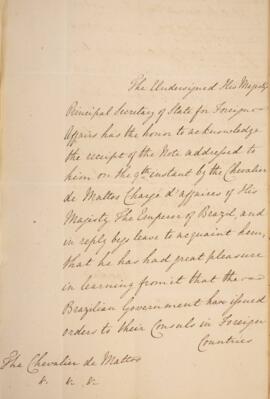 The Undersigned His Majesty's
Principal Secretary of State for Foreign
Affairs has the honor to acknowledge
the receipt of the Note addressed to
him on the 9th instant by the Chevalier
de Mattos Chargé d'affaires of His
Majesty The Emperor of Brazil, and
in reply begs leave to acquaint him,
that he has had great pleasure
in learning from it that the
Brazilian Government have issued
orders to their Consuls in Foreign
Countries
The Chevalier de Mattos
&. &. &.